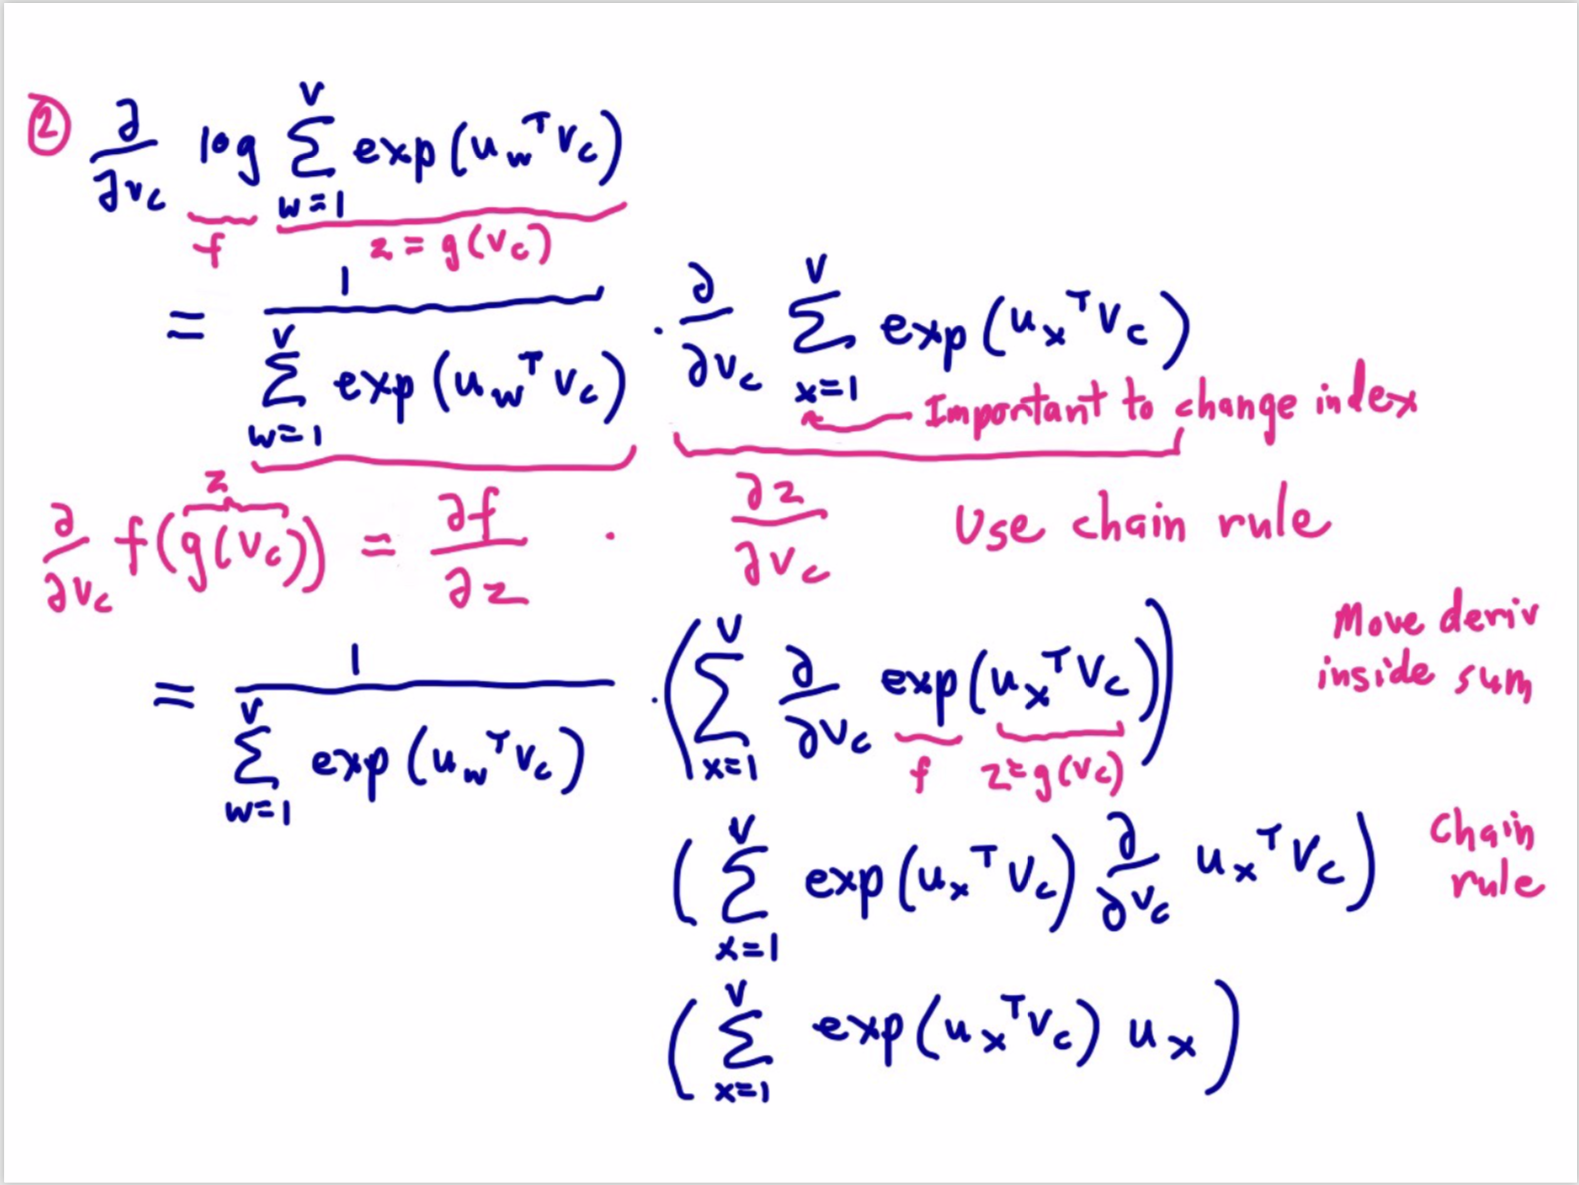 ② ∂/∂v_c log ∑_{w=1}^{V} exp(u_w^T v_c)
f z = g(v_c)
= 1 / ∑_{w=1}^{V} exp(u_w^T v_c) · ∂/∂v_c ∑_{x=1}^{V} exp(u_x^T v_c)
Important to change index
z
∂/∂v_c f(g(v_c)) = ∂f/∂z · ∂z/∂v_c Use chain rule
= 1 / ∑_{w=1}^{V} exp(u_w^T v_c) · (∑_{x=1}^{V} ∂/∂v_c exp(u_x^T v_c)) Move deriv
inside sum
f z = g(v_c)
(∑_{x=1}^{V} exp(u_x^T v_c) ∂/∂v_c u_x^T v_c) Chain
rule
(∑_{x=1}^{V} exp(u_x^T v_c) u_x)